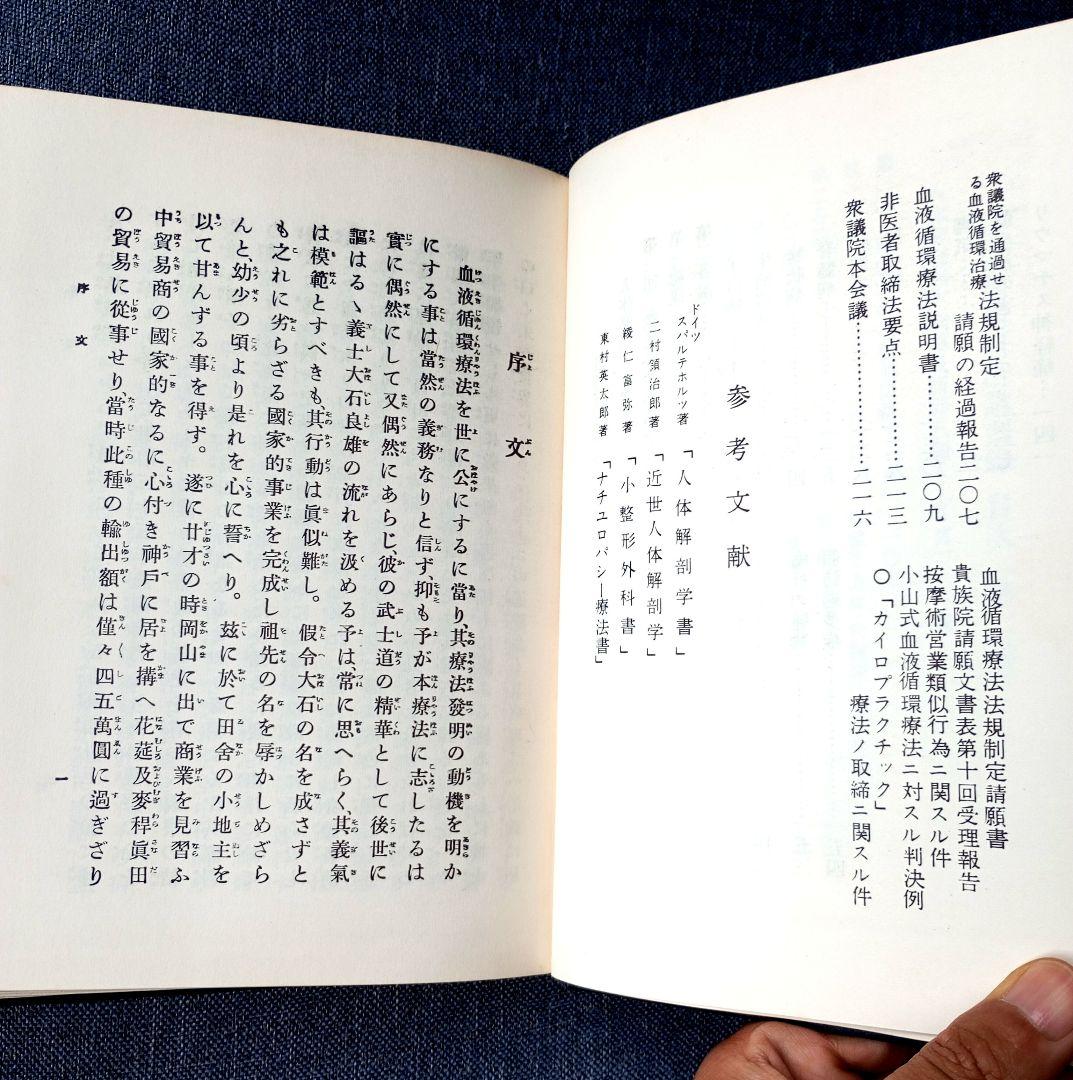 衆議院を通過せ
る血液循環治療
法規制定
請願の経過報告二〇七
血液循環療法説明書………………二〇九
非医者取締法要点…………………二一三
衆議院本会議………………………二一六
血液循環療法法規制定請願書
貴族院請願文書表第十回受理報告
按摩術営業類似行為ニ関スル件
小山式血液循環療法ニ対スル判決例
〇「カイロプラクチック」
療法ノ取締ニ関スル件
参考文献
ドイツ
スパルテホルツ著 「人体解剖学書」
二村領治郎著 「近世人体解剖学」
綾仁富弥著 「小整形外科書」
東村英太郎著 「ナチユロパシー療法書」
序文
血液循環療法を世に公にするに當り、其療法發明の動機を明か
にする事は當然の義務なりと信ず、抑も予が本療法に志したるは
實に偶然にして又偶然にあらじ、彼の武士道の精華として後世に
謳はるゝ義士大石良雄の流れを汲める予は、常に思へらく、其義氣
は模範とすべきも、其行動は眞似難し。假令大石の名を成さずと
も之れに劣らざる國家的事業を完成し祖先の名を辱かしめざら
んと、幼少の頃より是れを心に誓へり。玆に於て田舍の小地主を
以て甘んずる事を得ず。遂に廿才の時岡山に出で商業を見習ふ
中貿易商の國家的なるに心付き神戸に居を搆へ花莚及麥稈眞田
の貿易に從事せり、當時此種の輸出額は僅々四五萬圓に過ぎざり
序文
一